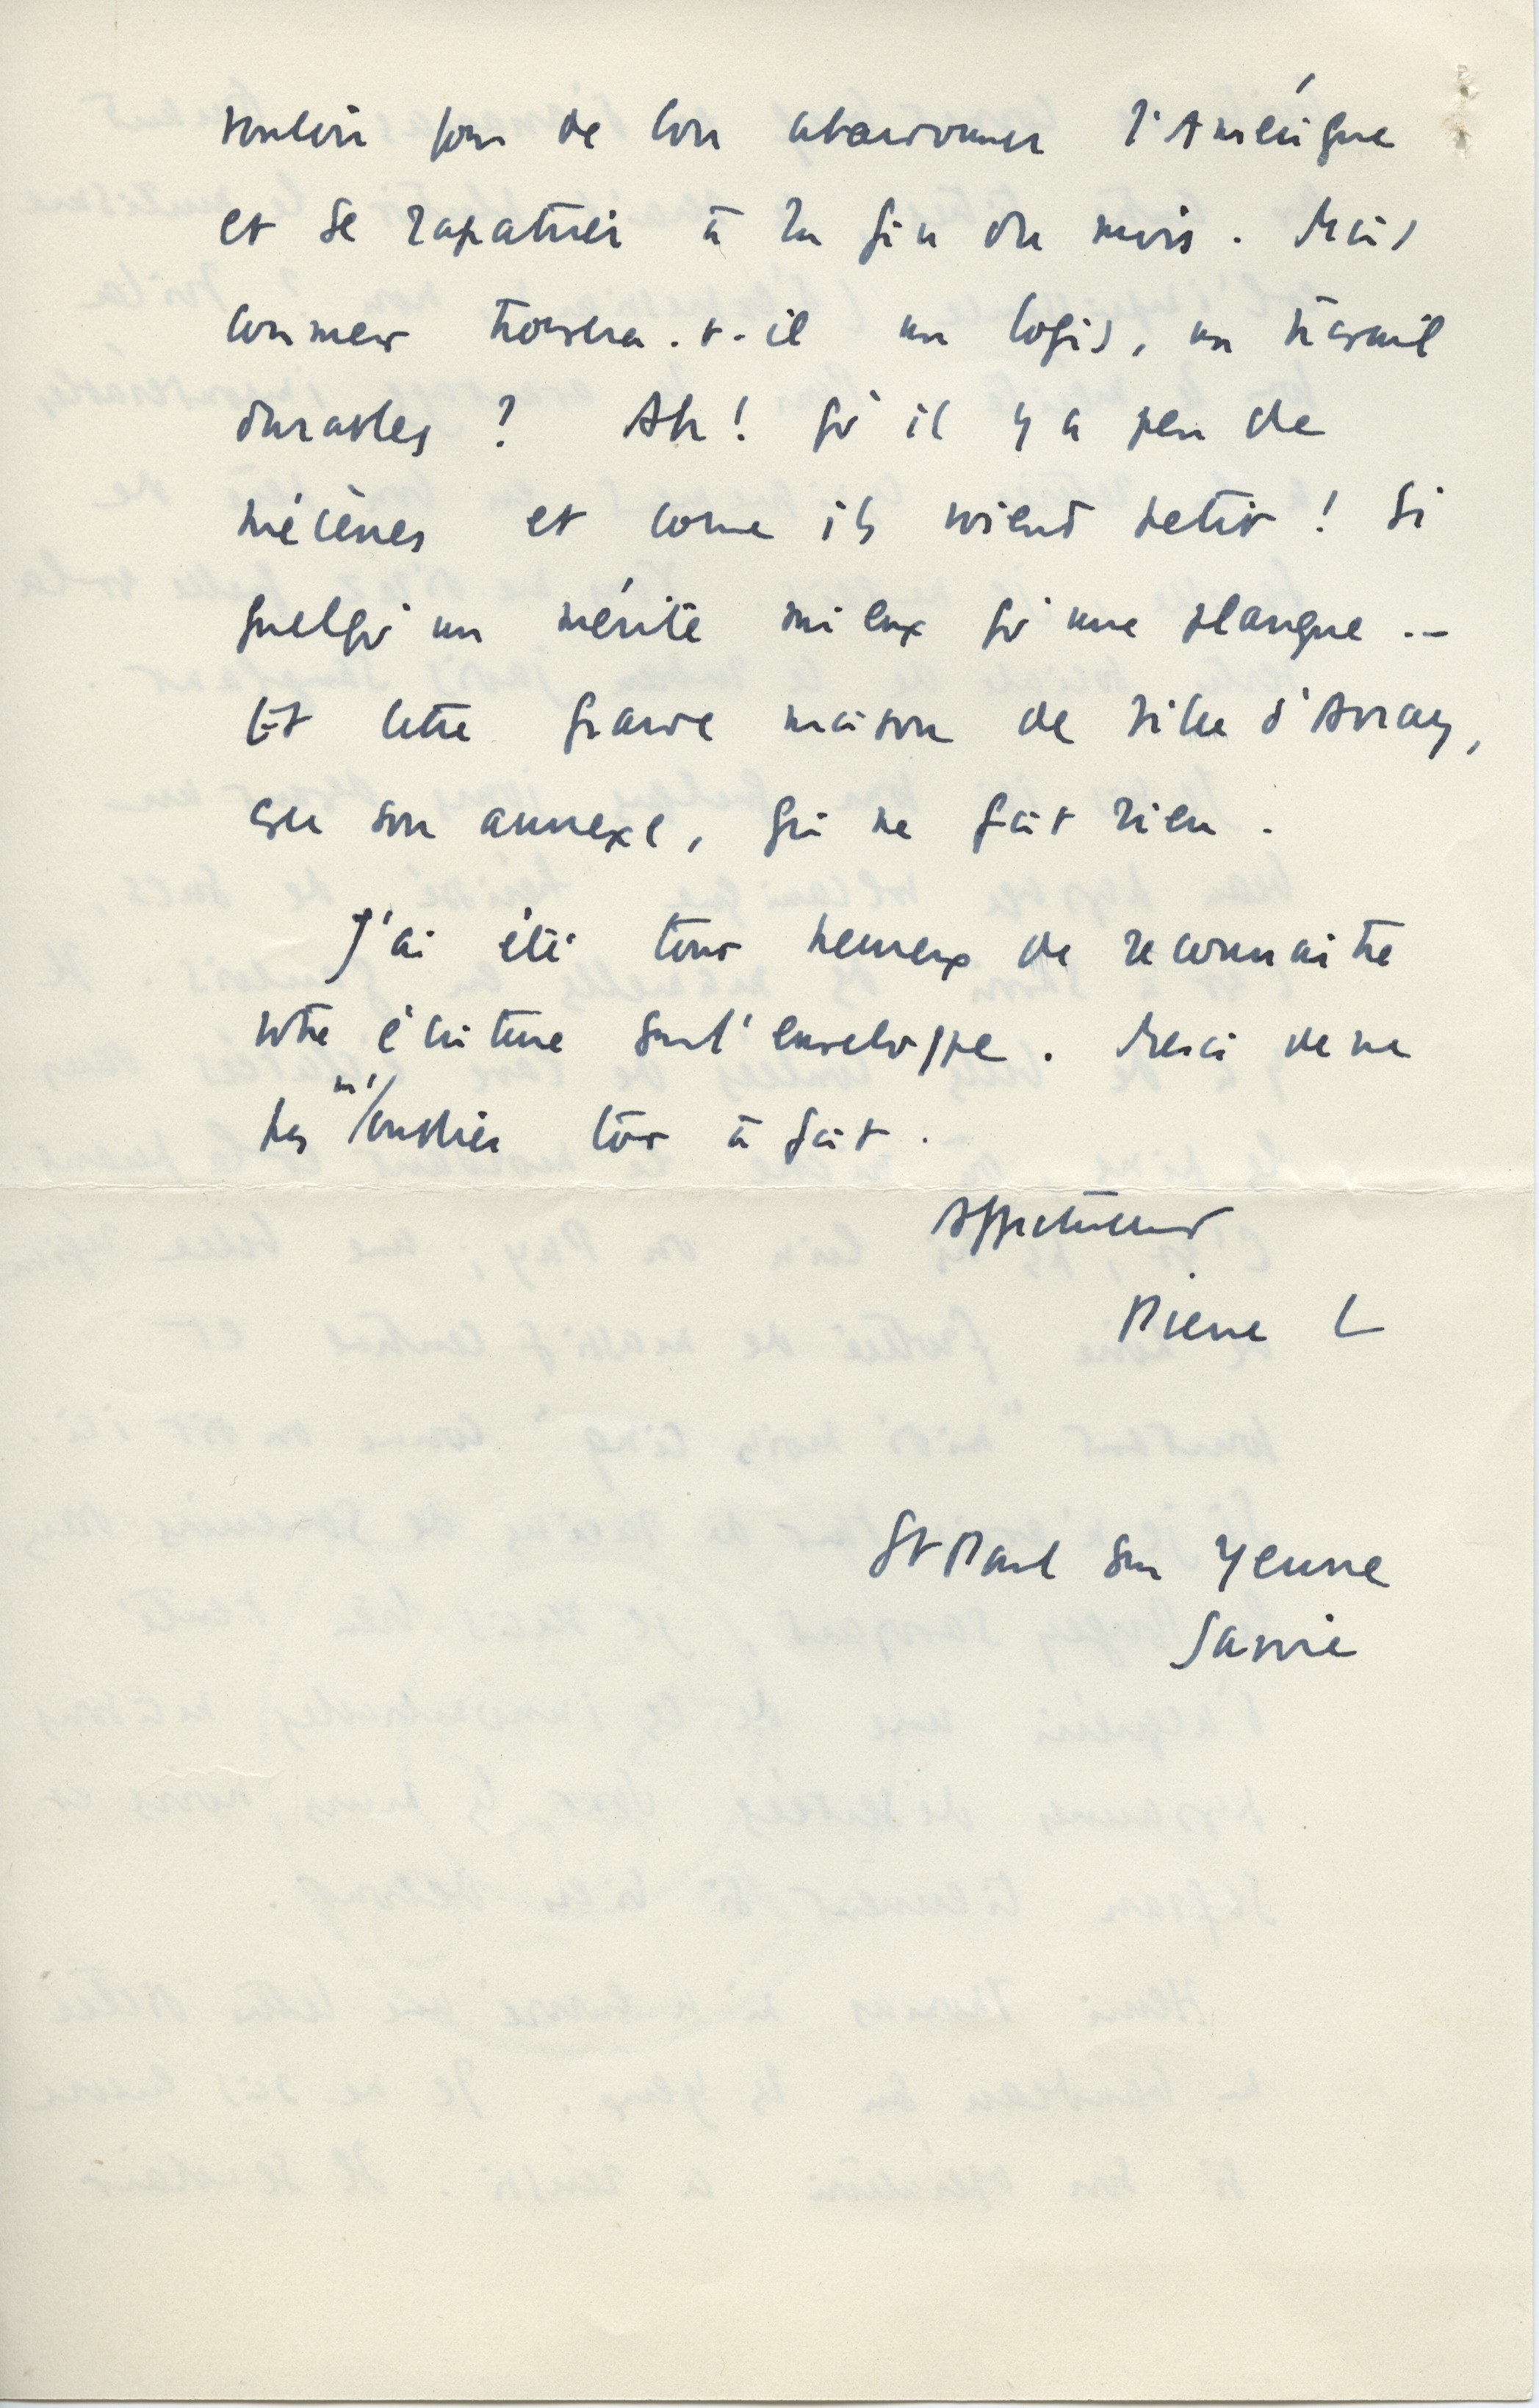 vouloir pour de bon abandonner l'Amérique
et se rapatrier à la fin du mois. Mais
comment trouvera-t-il un logis, un travail
durables ? Ah ! qu'il y a peu de
mécènes et comme ils voient petit ! Si
quelqu'un mérite mieux qu'une planque ..
Et cette grande maison de Ville d'Avray,
avec son annexe, qui ne fait rien.
J'ai été tout heureux de reconnaître
votre écriture sur l'enveloppe. Merci de ne
pas m'oublier tout à fait.
Affectueusement
Pierre L
St Paul sur Yenne
Savoie